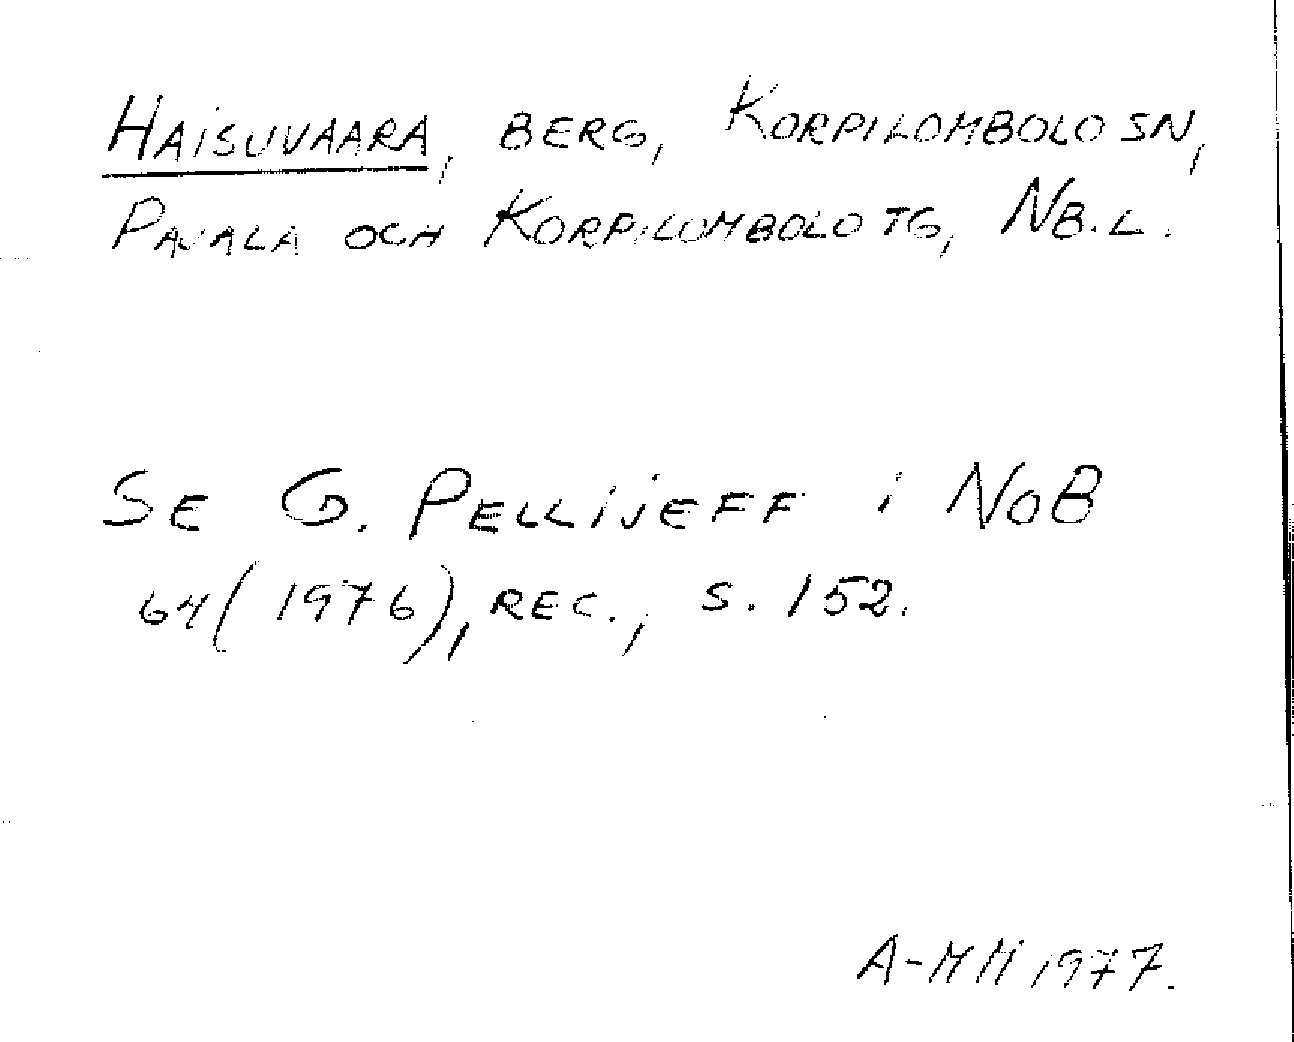 HAISUVAARA, BERG, KORPILOMBOLO SN,
PAJALA OCH KORPILOMBOLO TG, NB.L.
SE G. PELLIJEFF I NOB
64(1976), REC., S. 152.
A-MM 1977.